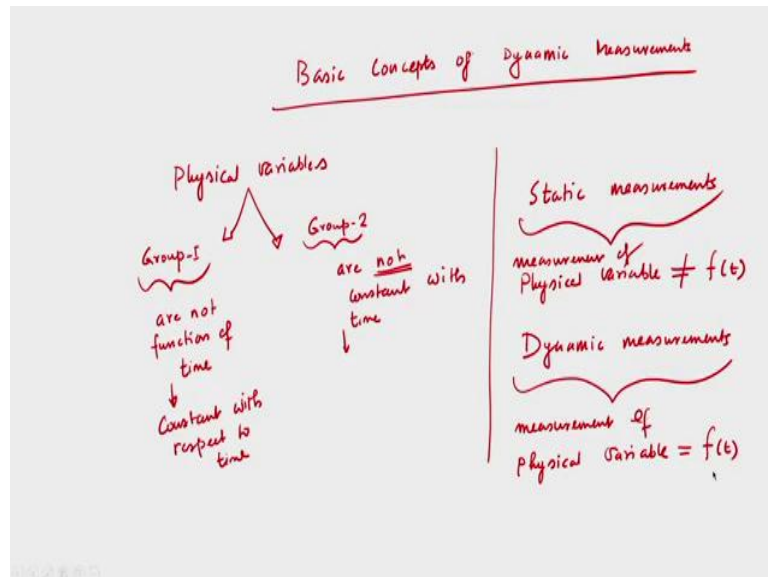 Basic Concepts of Dynamic Measurements
Physical variables
Group-1
are not
function of
time
Constant with
respect to
time
Group-2
are not
constant with
time
Static measurements
measurement of
Physical variable ≠ f(t)
Dynamic measurements
measurement of
Physical variable = f(t)